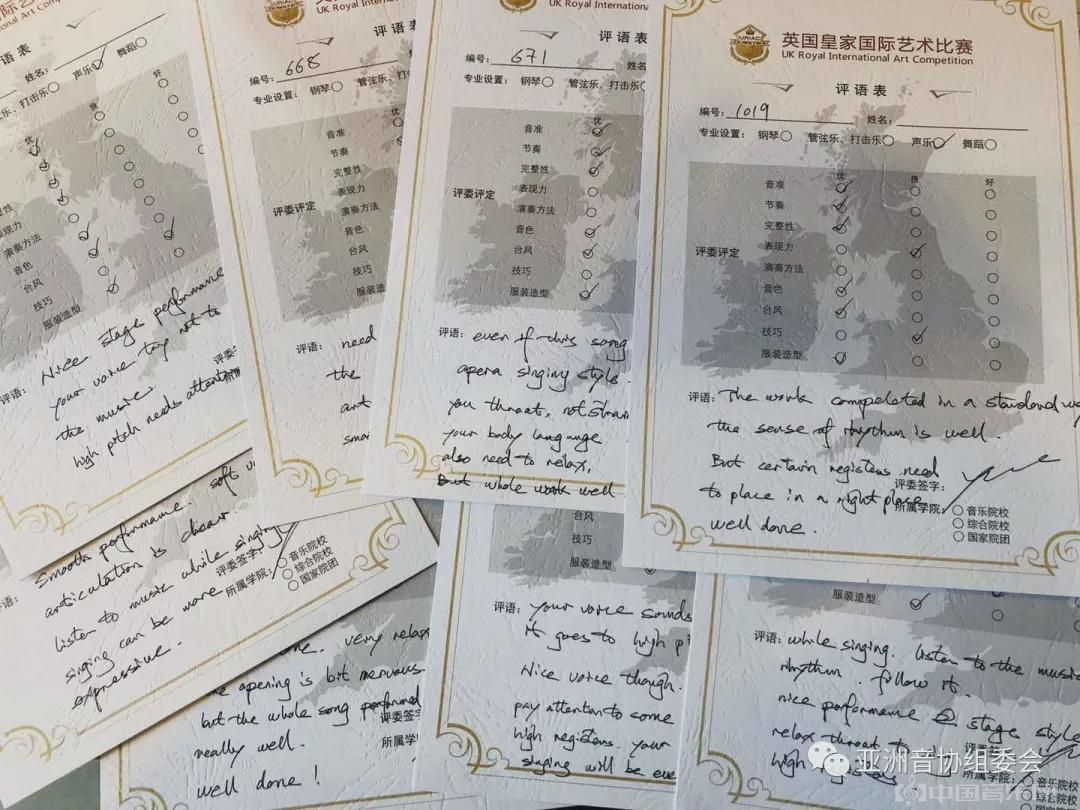 国际艺术比赛
national Art Competition
语表
姓名:
声乐
舞蹈
乐、打击乐
优
良
好
性
现力
演奏方法
音色
台风
技巧
服装造型
评语:
Nice stage performance
your voice try not to
the music.
high pitch needs attention
UK Royal International Art Comp
评语表
编号: 668
专业设置: 钢琴 管弦乐
评委评定
音准
节奏
完整性
表现力
演奏方法
音色
台风
技巧
服装造型
评语: need
the
UK Royal International
评语表
编号: 671 姓名
专业设置: 钢琴 管弦乐、打击乐
优
评委评定
音准
节奏
完整性
表现力
演奏方法
音色
台风
技巧
服装造型
评语: even if this song
opera singing style.
you throat, not strain
your body language
also need to relax,
But whole work well
URIAC
英国皇家国际艺术比赛
UK Royal International Art Competition
评语表
编号: 1019 姓名:
专业设置: 钢琴 管弦乐、打击乐 声乐 舞蹈
优 良 好
评委评定
音准
节奏
完整性
表现力
演奏方法
音色
台风
技巧
服装造型
评语: The work compeleted in a standard
the sense of rhythm is well.
But certain registers need
to place in a right place
well done.
评委签字:
所属学院: 音乐院校
综合院校
国家院团
评语:
soft
Smooth performance.
articulation is clear.
listen to music while singing
singing can be more
expressive.
评委签字:
所属学院: 音乐院校
综合院校
国家院团
very relax
opening is bit nervous
but the whole song performed
really well.
well done!
评委签字
所属学
台风
技巧
服装造型
评语: your voice sounds
it goes to high
Nice voice though.
pay attention to some
high registers. your
singing will be
服装造型
评语: while singing. listen to the music
rhythm. follow it.
nice performance stage style
relax throat to
high registers
所属学院: 音乐院校
综合院校
亚洲音协组委会
中国音乐